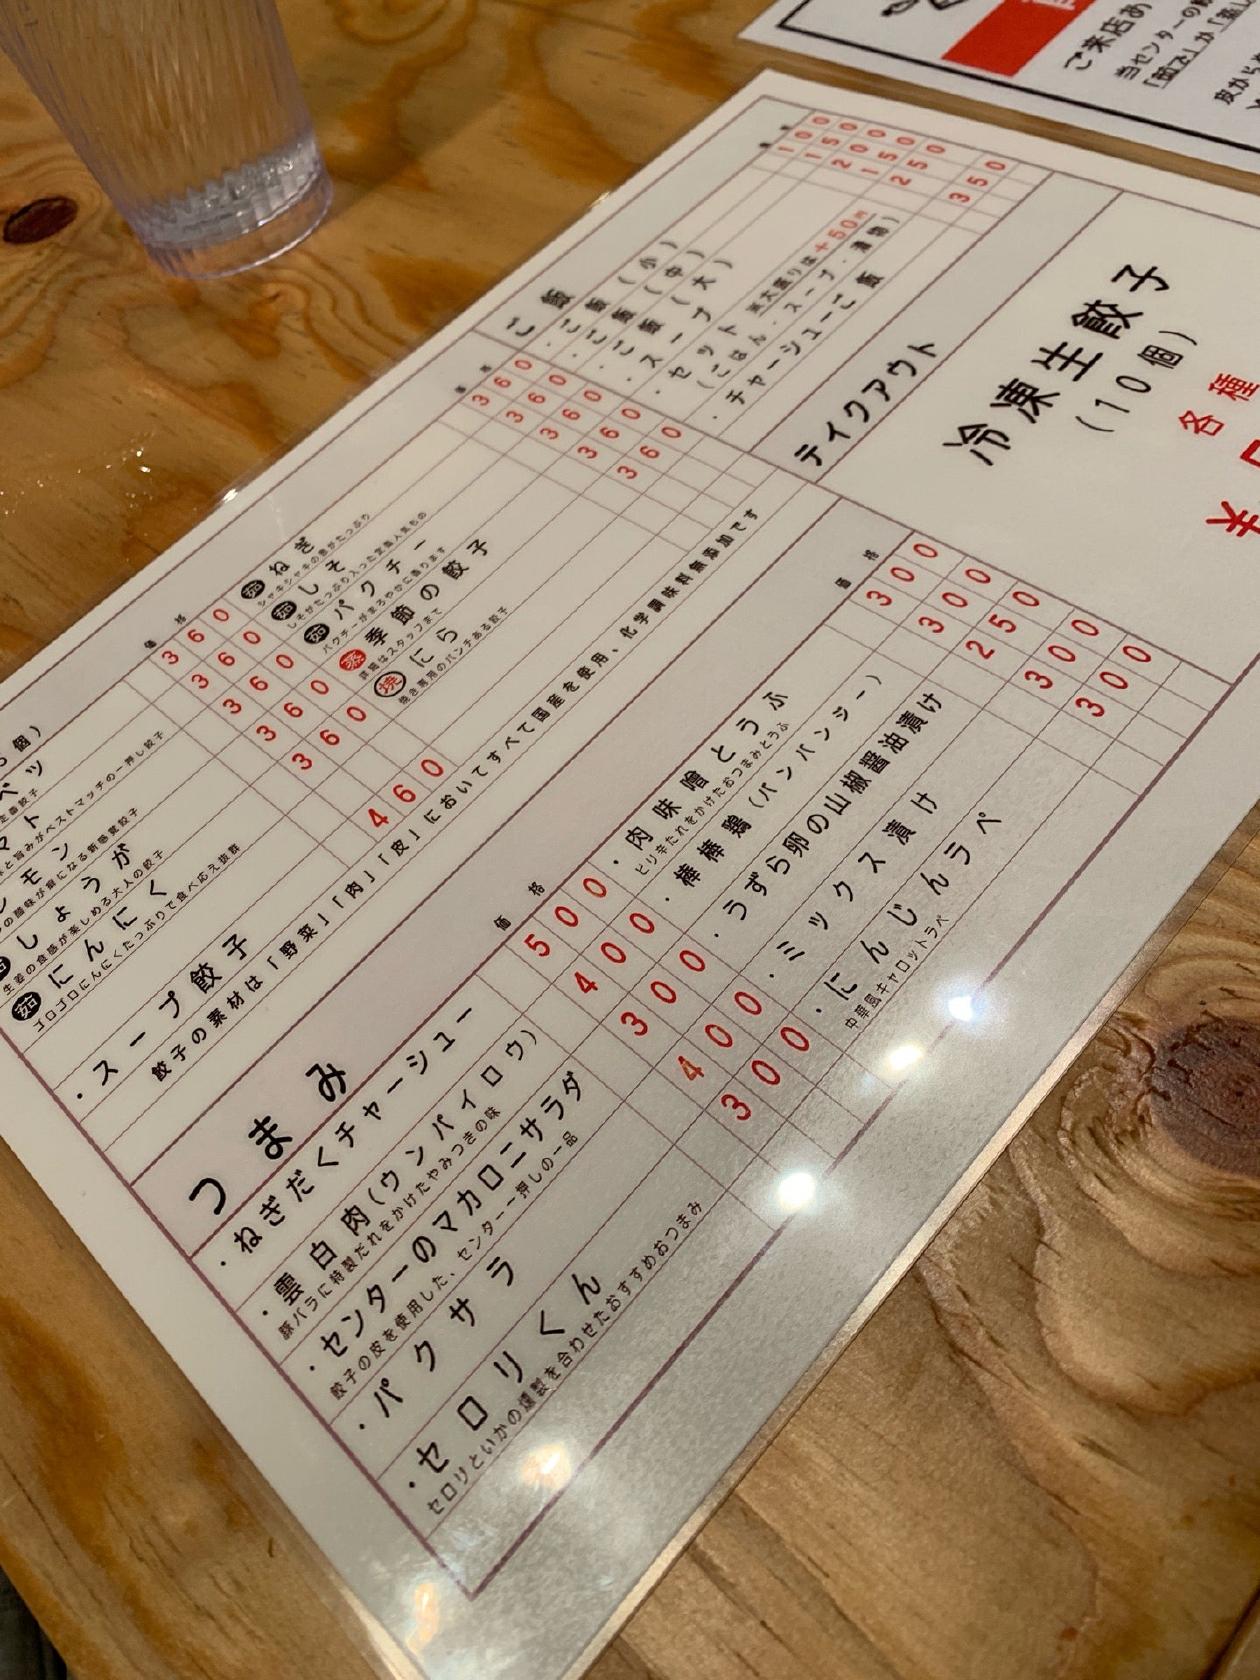 個)
ベツ
定番餃子
マト
と旨みがベストマッチの一押し餃子
モン
の酸味が癖になる新感覚餃子
しょうが
生姜の食感が楽しめる大人の餃子
茹 にんにく
ゴロゴロにんにくたっぷりで食べ応え抜群
価格
360
360
360
360
360
・スープ餃子 460
餃子の素材は「野菜」「肉」「皮」においてすべて国産を使用、化学調味料無添加です
価格
茹 ねぎ 360
シャキシャキの葱がたっぷり
茹 しそ 360
しそがたっぷり入った定番人気もの
茹 パクチー 360
パクチーがまろやかに香ります
蒸 季節の餃子 360
詳細はスタッフまで
焼 にら 360
焼き専用のパンチある餃子
ご飯
・ご飯(小) 100
・ご飯(中) 150
・ご飯(大) 200
・スープ 150
・セット 250
※大盛りは+50円
(ごはん・スープ・漬物)
・チャーシューご飯 350
つまみ 価格
・ねぎだくチャーシュー 500
・雲白肉(ウンパイロウ) 400
豚バラに特製だれをかけたやみつきの味
・センターのマカロニサラダ 300
餃子の皮を使用した、センター一押しの一品
・パクサラ 400
・セロリくん 300
セロリといかの燻製を合わせたおすすめおつまみ
価格
・肉味噌とうふ 300
ピリ辛たれをかけたおつまみとうふ
・棒棒鶏(バンバンジー) 300
・うずら卵の山椒醤油漬け 250
・ミックス漬け 300
・にんじんラペ 300
中華風キャロットラペ
テイクアウト
冷凍生餃子
(10個)
各種
¥
ご来店あ
当センターの餃
「茹で」か「蒸し
皮から